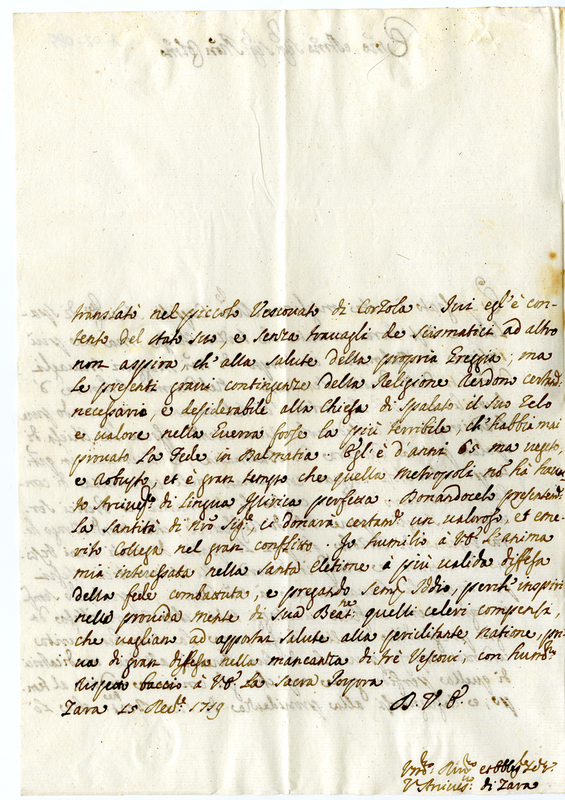 translatò nel piccolo Vescovato di Corzola. Ivi egl'è con-
tento del stato suo e senza travagli de Scismatici ad altro
non aspira, ch'alla salute della propria Greggia; ma
le presenti gravi contingenze della Religione rendono certam.
necessario, e desiderabile alla Chiesa di Spalato il suo Zelo
e valore nella Guerra forse la più terribile, ch'habbia mai
provato la Fede in Dalmatia. Egl'è d'anni 65 ma vegeto,
e Robusto, et è gran tempo che quella Metropoli nõ hà havu-
to Arcives.º di Lingua Illirica perfetta. Donandocelo presentem.
la Santità di Nrõ Sig.re ci donara certam. un valoroso, et eme-
rito Collega nel gran conflitto. Io humilio à V.E. l'anima
mia interessata nella Santa Elettione à più valida diffesa
della fede combattuta, e pregando sempre Iddio, perche inspiri
nella provida mente di Sua Beat.ne quelli celeri compensi,
che vagliano ad apportar salute alla periclitante Natione, pri-
va di gran diffesa nella mancanza di trè Vescovi, con humil.
Rispetto baccio à V.E. la Sacra Porpora
Zara 15 1719 D. V. E.
di Zara